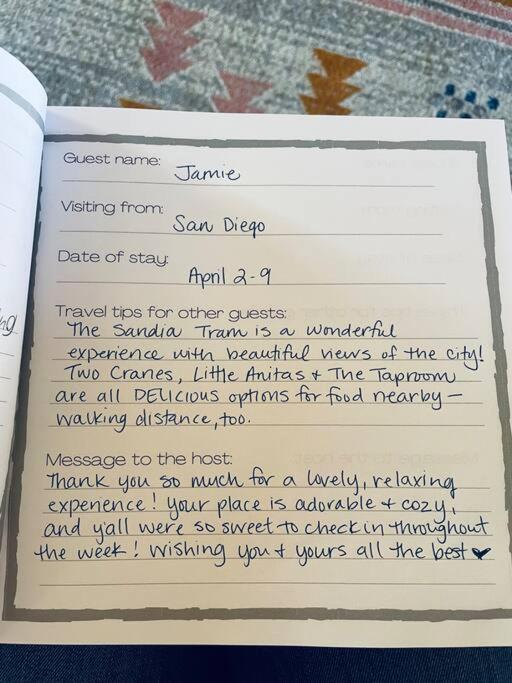 Guest name: Jamie
Visiting from: San Diego
Date of stay: April 2-9
Travel tips for other guests:
The Sandia Tram is a wonderful
experience with beautiful views of the city!
Two Cranes, Little Anitas + The Taproom
are all DELICIOUS options for food nearby—
walking distance, too.
Message to the host:
Thank you so much for a lovely, relaxing
experience! Your place is adorable + cozy,
and y'all were so sweet to check in throughout
the week! Wishing you + yours all the best ♥